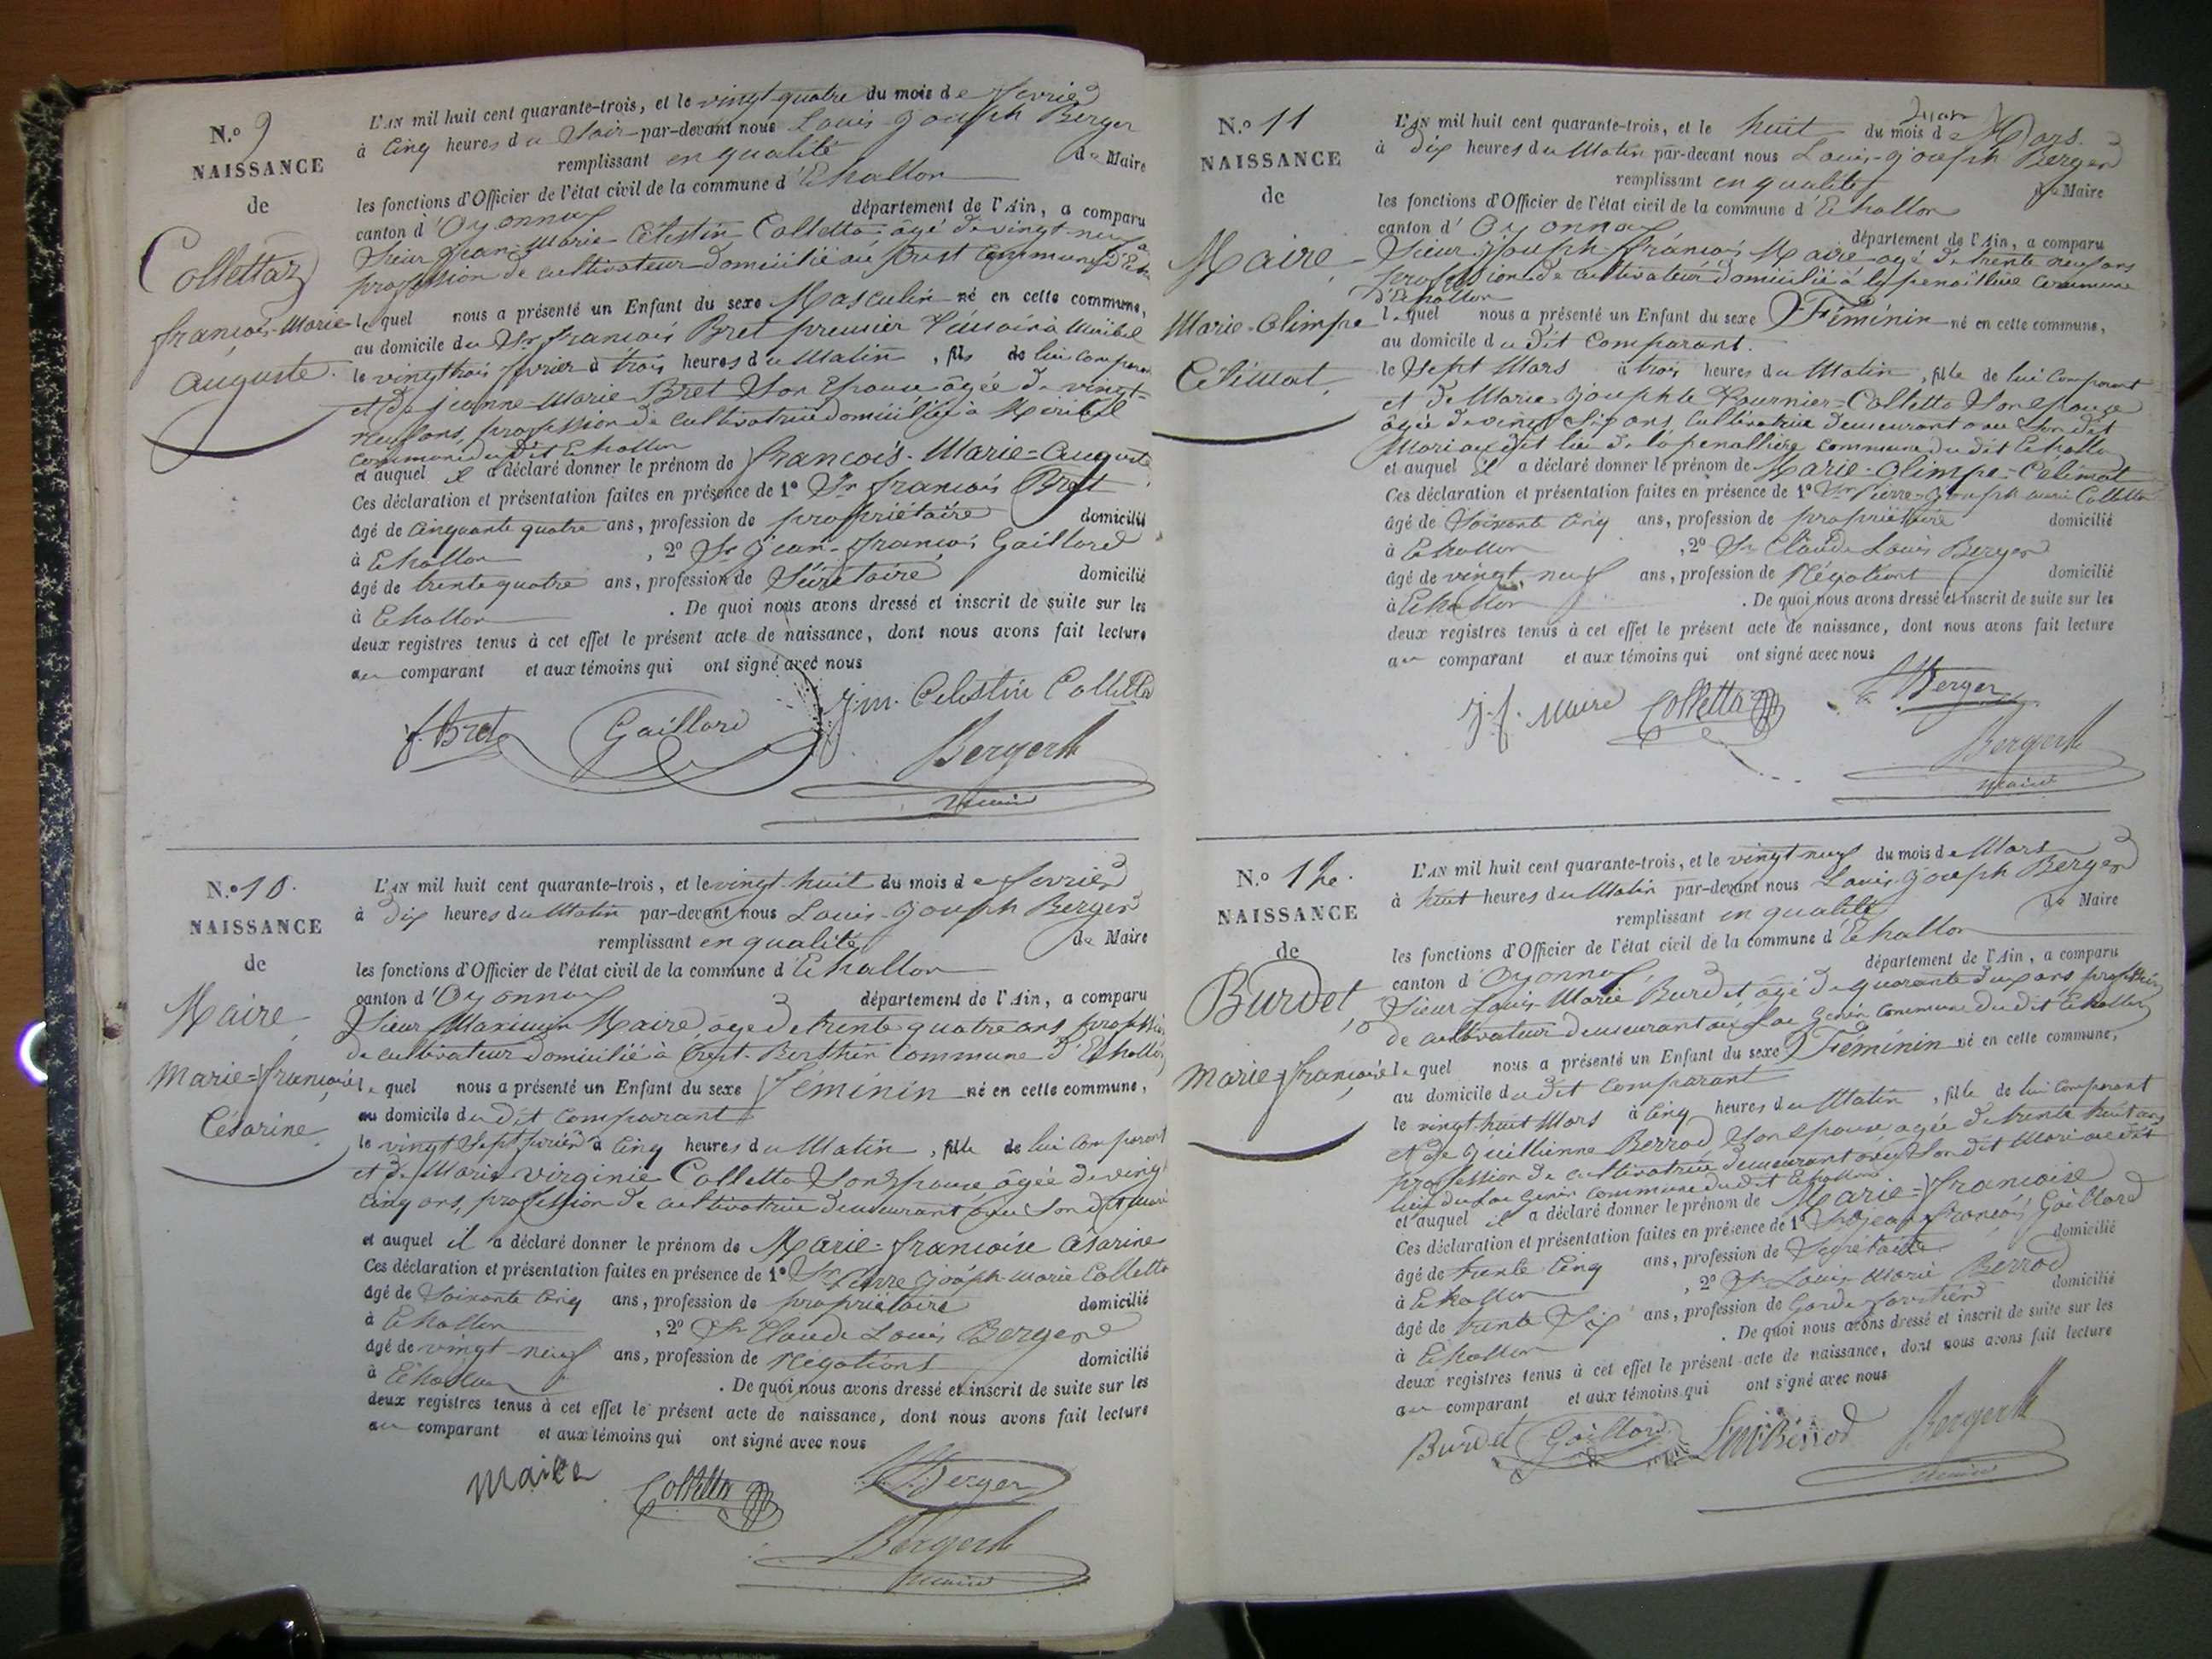 N.° 9
NAISSANCE
de
Collettaz
françois-Marie
auguste.
L'AN mil huit cent quarante-trois, et le vingt-quatre du mois de fevrier
à Cinq heures du Soir par-devant nous Louis-Joseph Berger
remplissant en qualité de Maire
les fonctions d'Officier de l'état civil de la commune d'Echallon
canton d'Oyonnax département de l'Ain, a comparu
Sieur Jean-Marie Célestin Colletta âgé de vingt-neuf
profession de cultivateur domicilié au Crest Commune d'
lequel nous a présenté un Enfant du sexe Masculin né en cette commune,
au domicile du Sr françois Bret premier
le vingt trois fevrier à trois heures du Matin, fils de lui comparant
et de jeanne-Marie Bret Son Epouse âgée de vingt-
neuf ans, profession de cultivatrice domiciliée à
commune du dit Echallon
et auquel il a déclaré donner le prénom de francois-Marie=Auguste
Ces déclaration et présentation faites en présence de 1° Sr francois Bret
âgé de cinquante quatre ans, profession de propriétaire domicilié
à Echallon, 2° Sr Jean-françois Gaillard
âgé de trente quatre ans, profession de Sécretaire domicilié
à Echallon. De quoi nous avons dressé et inscrit de suite sur les
deux registres tenus à cet effet le présent acte de naissance, dont nous avons fait lecture
au comparant et aux témoins qui ont signé avec nous
f. Bret Gaillard J.m. Celestin Colletta
Berger
Maire
N.° 10.
NAISSANCE
de
Maire
Marie=françoise
Césarine
L'AN mil huit cent quarante-trois, et le vingt-huit du mois de fevrier
à dix heures du Matin par-devant nous Louis-Joseph Berger
remplissant en qualité de Maire
les fonctions d'Officier de l'état civil de la commune d'Echallon
canton d'Oyonnax département de l'Ain, a comparu
Sieur Maximin Maire, âgé de trente quatre ans profession
de cultivateur domicilié à Crest-Berthin Commune d'Echallon
lequel nous a présenté un Enfant du sexe féminin né en cette commune,
au domicile du dit comparant
le vingt Sept fevrier à Cinq heures du Matin, fille de lui Comparant
et de Marie virginie Colletta Son Epouse, âgée de vingt
Cinq ans, profession de cultivatrice demeurant avec Son dit mari
et auquel il a déclaré donner le prénom de Marie-françoise Césarine
Ces déclaration et présentation faites en présence de 1° Sr Pierre Joseph-Marie Colletta
âgé de Soixante Cinq ans, profession de propriétaire domicilié
à Echallon, 2° Sr Claude Louis Berger
âgé de vingt-neuf ans, profession de Négotiant domicilié
à Echallon. De quoi nous avons dressé et inscrit de suite sur les
deux registres tenus à cet effet le présent acte de naissance, dont nous avons fait lecture
au comparant et aux témoins qui ont signé avec nous
Maire Colletta Berger
Berger
Maire
N.° 11
NAISSANCE
de
Maire
Marie-Olimpe
Célimat
L'AN mil huit cent quarante-trois, et le huit du mois de Mars
à dix heures du Matin par-devant nous Louis-Joseph Berger
remplissant en qualité de Maire
les fonctions d'Officier de l'état civil de la commune d'Echallon
canton d'Oyonnax département de l'Ain, a comparu
Sieur Joseph-françois Maire âgé de trente neuf ans
profession de cultivateur domicilié à la Commune
d'Echallon
lequel nous a présenté un Enfant du sexe Féminin né en cette commune,
au domicile du dit Comparant.
le Sept Mars à trois heures du Matin, fille de lui Comparant
et de Marie-Josephte Fournier-Colletta Son Epouse
âgée de vingt Six ans, Cultivatrice demeurant avec Son dit
Mari au dit lieu de la penallière commune du dit Echallon
et auquel il a déclaré donner le prénom de Marie-Olimpe-Célimat
Ces déclaration et présentation faites en présence de 1° Sr Pierre-Joseph-marie Colletta
âgé de Soixante Cinq ans, profession de propriétaire domicilié
à Echallon, 2° Sr Claude Louis Berger
âgé de vingt neuf ans, profession de Négotiant domicilié
à Echallon. De quoi nous avons dressé et inscrit de suite sur les
deux registres tenus à cet effet le présent acte de naissance, dont nous avons fait lecture
au comparant et aux témoins qui ont signé avec nous
J. f. Maire Colletta Berger
Berger
Maire
N.° 12.
NAISSANCE
de
Burdet
Marie=françoise
L'AN mil huit cent quarante-trois, et le vingt neuf du mois de Mars
à huit heures du Matin par-devant nous Louis-Joseph Berger
remplissant en qualité de Maire
les fonctions d'Officier de l'état civil de la commune d'Echallon
canton d'Oyonnax département de l'Ain, a comparu
Sieur Louis-Marie Burdet, âgé de quarante deux ans profession
de cultivateur demeurant au Lac Genin Commune du dit Echallon
lequel nous a présenté un Enfant du sexe Féminin né en cette commune,
au domicile du dit comparant
le vingt-huit Mars à Cinq heures du Matin, fille de lui Comparant
et de Guillienne Berrod, Son Epouse âgée de trente huit ans
profession de cultivatrice demeurant avec Son dit Mari au dit
lieu du Lac Genin Commune du dit Echallon
et auquel il a déclaré donner le prénom de Marie=françoise
Ces déclaration et présentation faites en présence de 1° Sr Jean-françois Gaillard
âgé de trente Cinq ans, profession de Secrétaire domicilié
à Echallon, 2° Sr Louis Marie Berrod
âgé de trente Six ans, profession de Garde forestier domicilié
à Echallon. De quoi nous avons dressé et inscrit de suite sur les
deux registres tenus à cet effet le présent acte de naissance, dont nous avons fait lecture
au comparant et aux témoins qui ont signé avec nous
Burdet Gaillard Berrod Berger
Maire